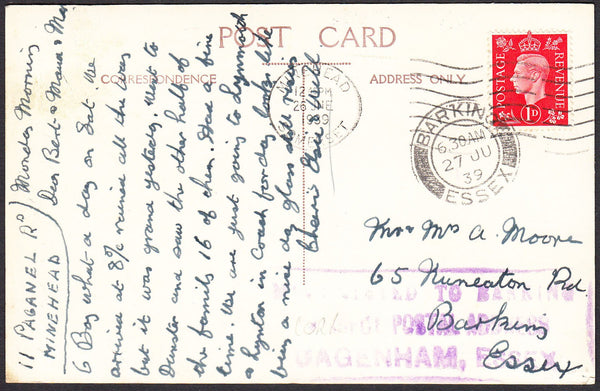 POST CARD
CORRESPONDENCE
ADDRESS ONLY.
11 PAGANEL RD
MINEHEAD
Monday Morning
Dear Bert & Maud &
6 Boy what a day on Sat. We
arrived at 8% rained all the way
but it was grand yesterday. Went to
Dunster and saw the other half of
the family 16 of them. Had a fine
time. We are just going to Lynmouth
& Lynton in Coach for day looks like
being a nice day glass still rising
Cheerio
MINEHEAD
12 PM
26 JNE
1939
SOMERSET
POSTAGE
REVENUE
1D
BARKING
6.30AM
27 JU
39
ESSEX
Mr & Mrs A. Moore
65 Nuneaton Rd.
Barking
Essex
TO BARKING
CORRECT POSTAL ADDRESS
DAGENHAM, ESSEX